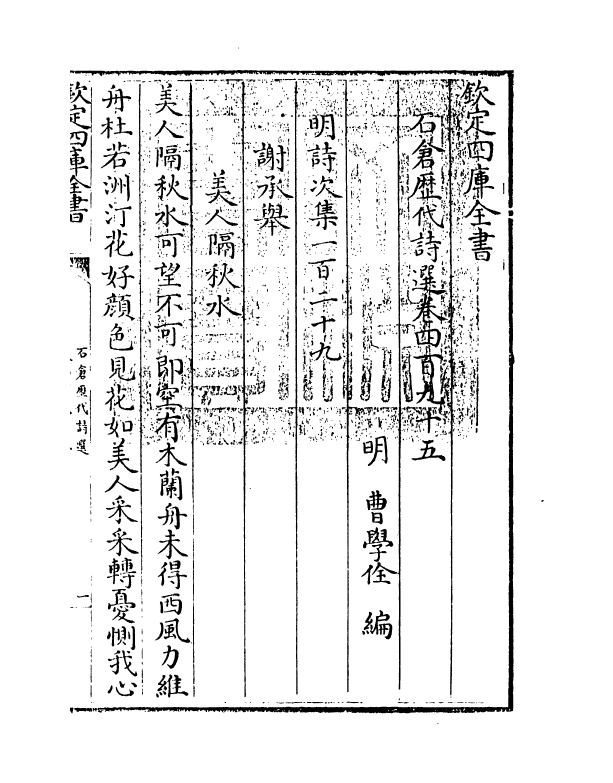 欽定四庫全書
石倉歴代詩選卷四百九十五
明 曹學佺 編
明詩次集一百二十九
謝承舉
美人隔秋水
美人隔秋水可望不可即空有木蘭舟未得西風力維
舟杜若洲汀花好顔色見花如美人采采轉憂惻我心
欽定四庫全書
石倉歴代詩選
一